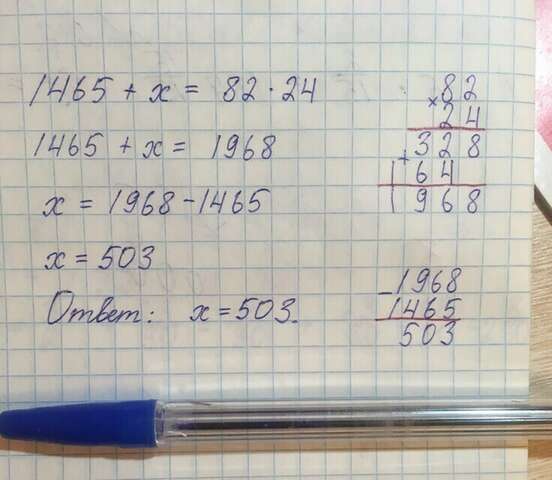 1465 + x = 82 · 24
1465 + x = 1968
x = 1968 - 1465
x = 503
Ответ: x = 503.
× 82
24
328
+
164
1968
- 1968
1465
503